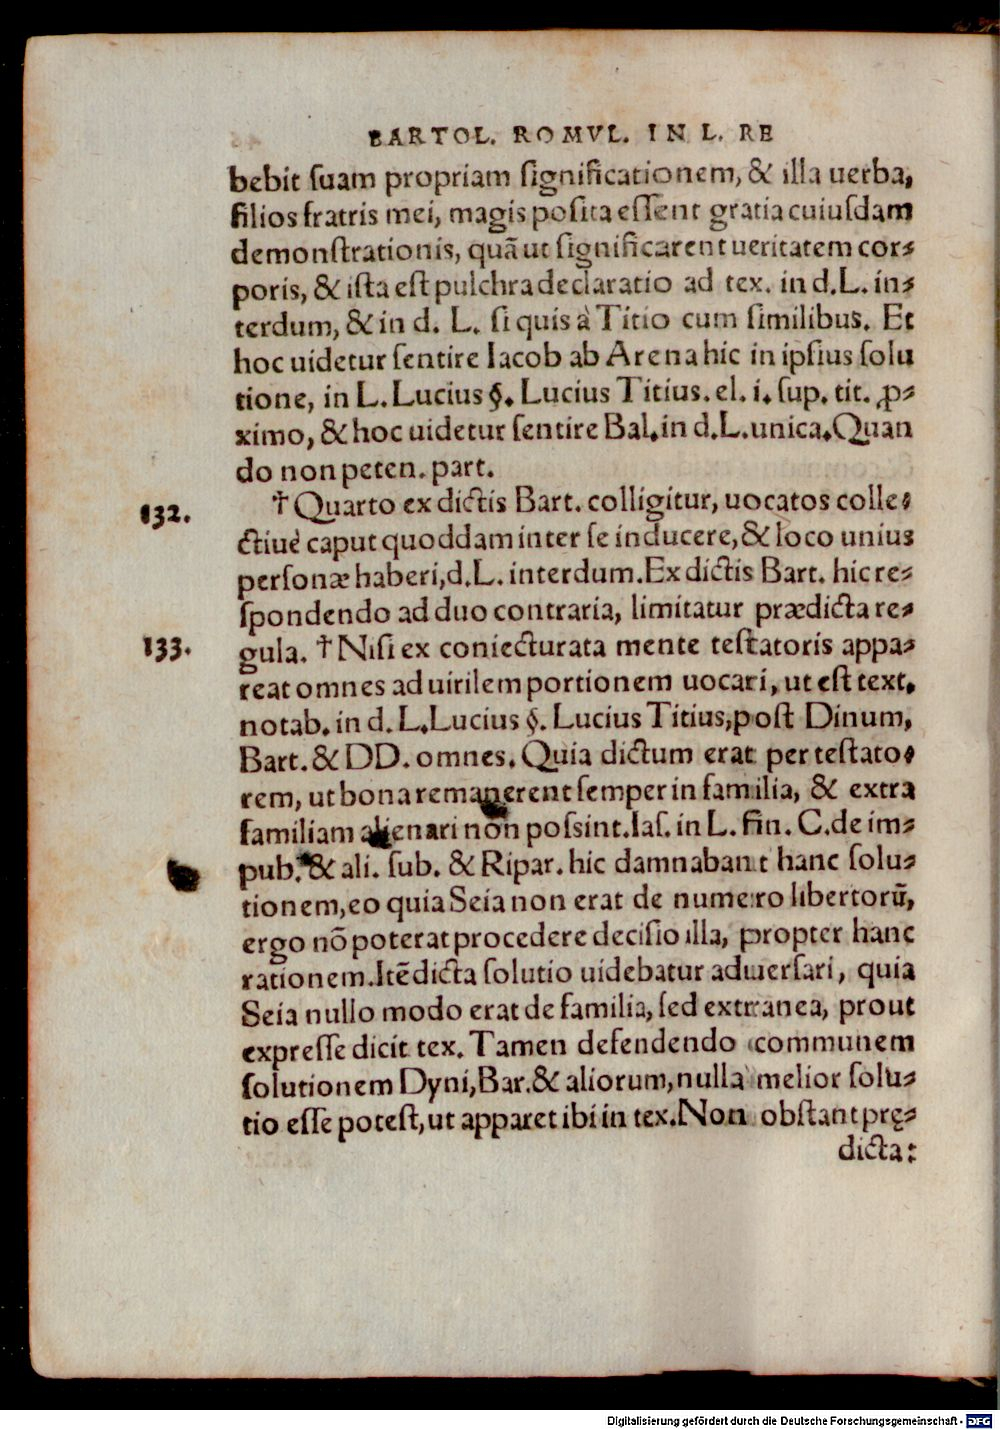 BARTOL. ROMVL. IN L. RE
bebit ſuam propriam ſignificationem, & illa uerba,
filios fratris mei, magis poſita eſſent gratia cuiuſdam
demonſtrationis, quã ut ſignificarent ueritatem cor-
poris, & iſta eſt pulchra declaratio ad tex. in d. L. in-
terdum, & in d. L. ſi quis à Titio cum ſimilibus. Et
hoc uidetur ſentire Iacob ab Arena hic in ipſius ſolu
tione, in L. Lucius §. Lucius Titius. el. i. ſup. tit. ꝓ-
ximo, & hoc uidetur ſentire Bal. in d. L. unica. Quan
do non peten. part.
132. † Quarto ex dictis Bart. colligitur, uocatos colle-
ctiuè caput quoddam inter ſe inducere, & loco unius
perſonæ haberi, d. L. interdum. Ex dictis Bart. hic re-
ſpondendo ad duo contraria, limitatur prædicta re-
133. gula. † Niſi ex coniecturata mente teſtatoris appa-
reat omnes ad uirilem portionem uocari, ut eſt text.
notab. in d. L. Lucius §. Lucius Titius, poſt Dinum,
Bart. & DD. omnes. Quia dictum erat per teſtato-
rem, ut bona remanerent ſemper in familia, & extra
familiam alienari non poſsint. Iaſ. in L. fin. C. de im-
pub. & ali. ſub. & Ripar. hic damnabant hanc ſolu-
tionem, eo quia Seia non erat de numero libertorũ,
ergo nõ poterat procedere deciſio illa, propter hanc
rationem. Itẽ dicta ſolutio uidebatur aduerſari, quia
Seia nullo modo erat de familia, ſed extranea, prout
expreſſe dicit tex. Tamen defendendo communem
ſolutionem Dyni, Bar. & aliorum, nulla melior ſolu-
tio eſſe poteſt, ut apparet ibi in tex. Non obſtant prę-
dicta:
Digitalisierung gefördert durch die Deutsche Forschungsgemeinschaft - DFG